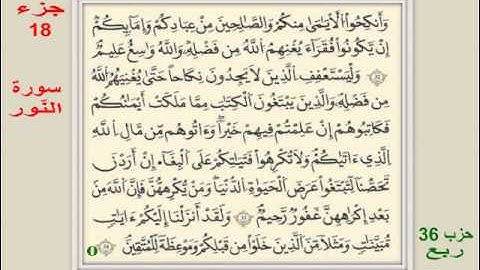 جزء
18
سورة
النّور
وَأَنكِحُوا۟ ٱلْأَيَٰمَىٰ مِنكُمْ وَٱلصَّٰلِحِينَ مِنْ عِبَادِكُمْ وَإِمَآئِكُمْ
إِن يَكُونُوا۟ فُقَرَآءَ يُغْنِهِمُ ٱللَّهُ مِن فَضْلِهِۦ وَٱللَّهُ وَٰسِعٌ عَلِيمٌ
وَلْيَسْتَعْفِفِ ٱلَّذِينَ لَا يَجِدُونَ نِكَاحًا حَتَّىٰ يُغْنِيَهُمُ ٱللَّهُ
مِن فَضْلِهِۦ وَٱلَّذِينَ يَبْتَغُونَ ٱلْكِتَٰبَ مِمَّا مَلَكَتْ أَيْمَٰنُكُمْ
فَكَاتِبُوهُمْ إِنْ عَلِمْتُمْ فِيهِمْ خَيْرًا وَءَاتُوهُم مِّن مَّالِ ٱللَّهِ
ٱلَّذِىٓ ءَاتَىٰكُمْ وَلَا تُكْرِهُوا۟ فَتَيَٰتِكُمْ عَلَى ٱلْبِغَآءِ إِنْ أَرَدْنَ
تَحَصُّنًا لِّتَبْتَغُوا۟ عَرَضَ ٱلْحَيَوٰةِ ٱلدُّنْيَا وَمَن يُكْرِههُّنَّ فَإِنَّ ٱللَّهَ مِنۢ
بَعْدِ إِكْرَٰهِهِنَّ غَفُورٌ رَّحِيمٌ وَلَقَدْ أَنزَلْنَآ إِلَيْكُمْ ءَايَٰتٍ
مُّبَيَّنَٰتٍ وَمَثَلًا مِّنَ ٱلَّذِينَ خَلَوْا۟ مِن قَبْلِكُمْ وَمَوْعِظَةً لِّلْمُتَّقِينَ
حزب 36
ربع